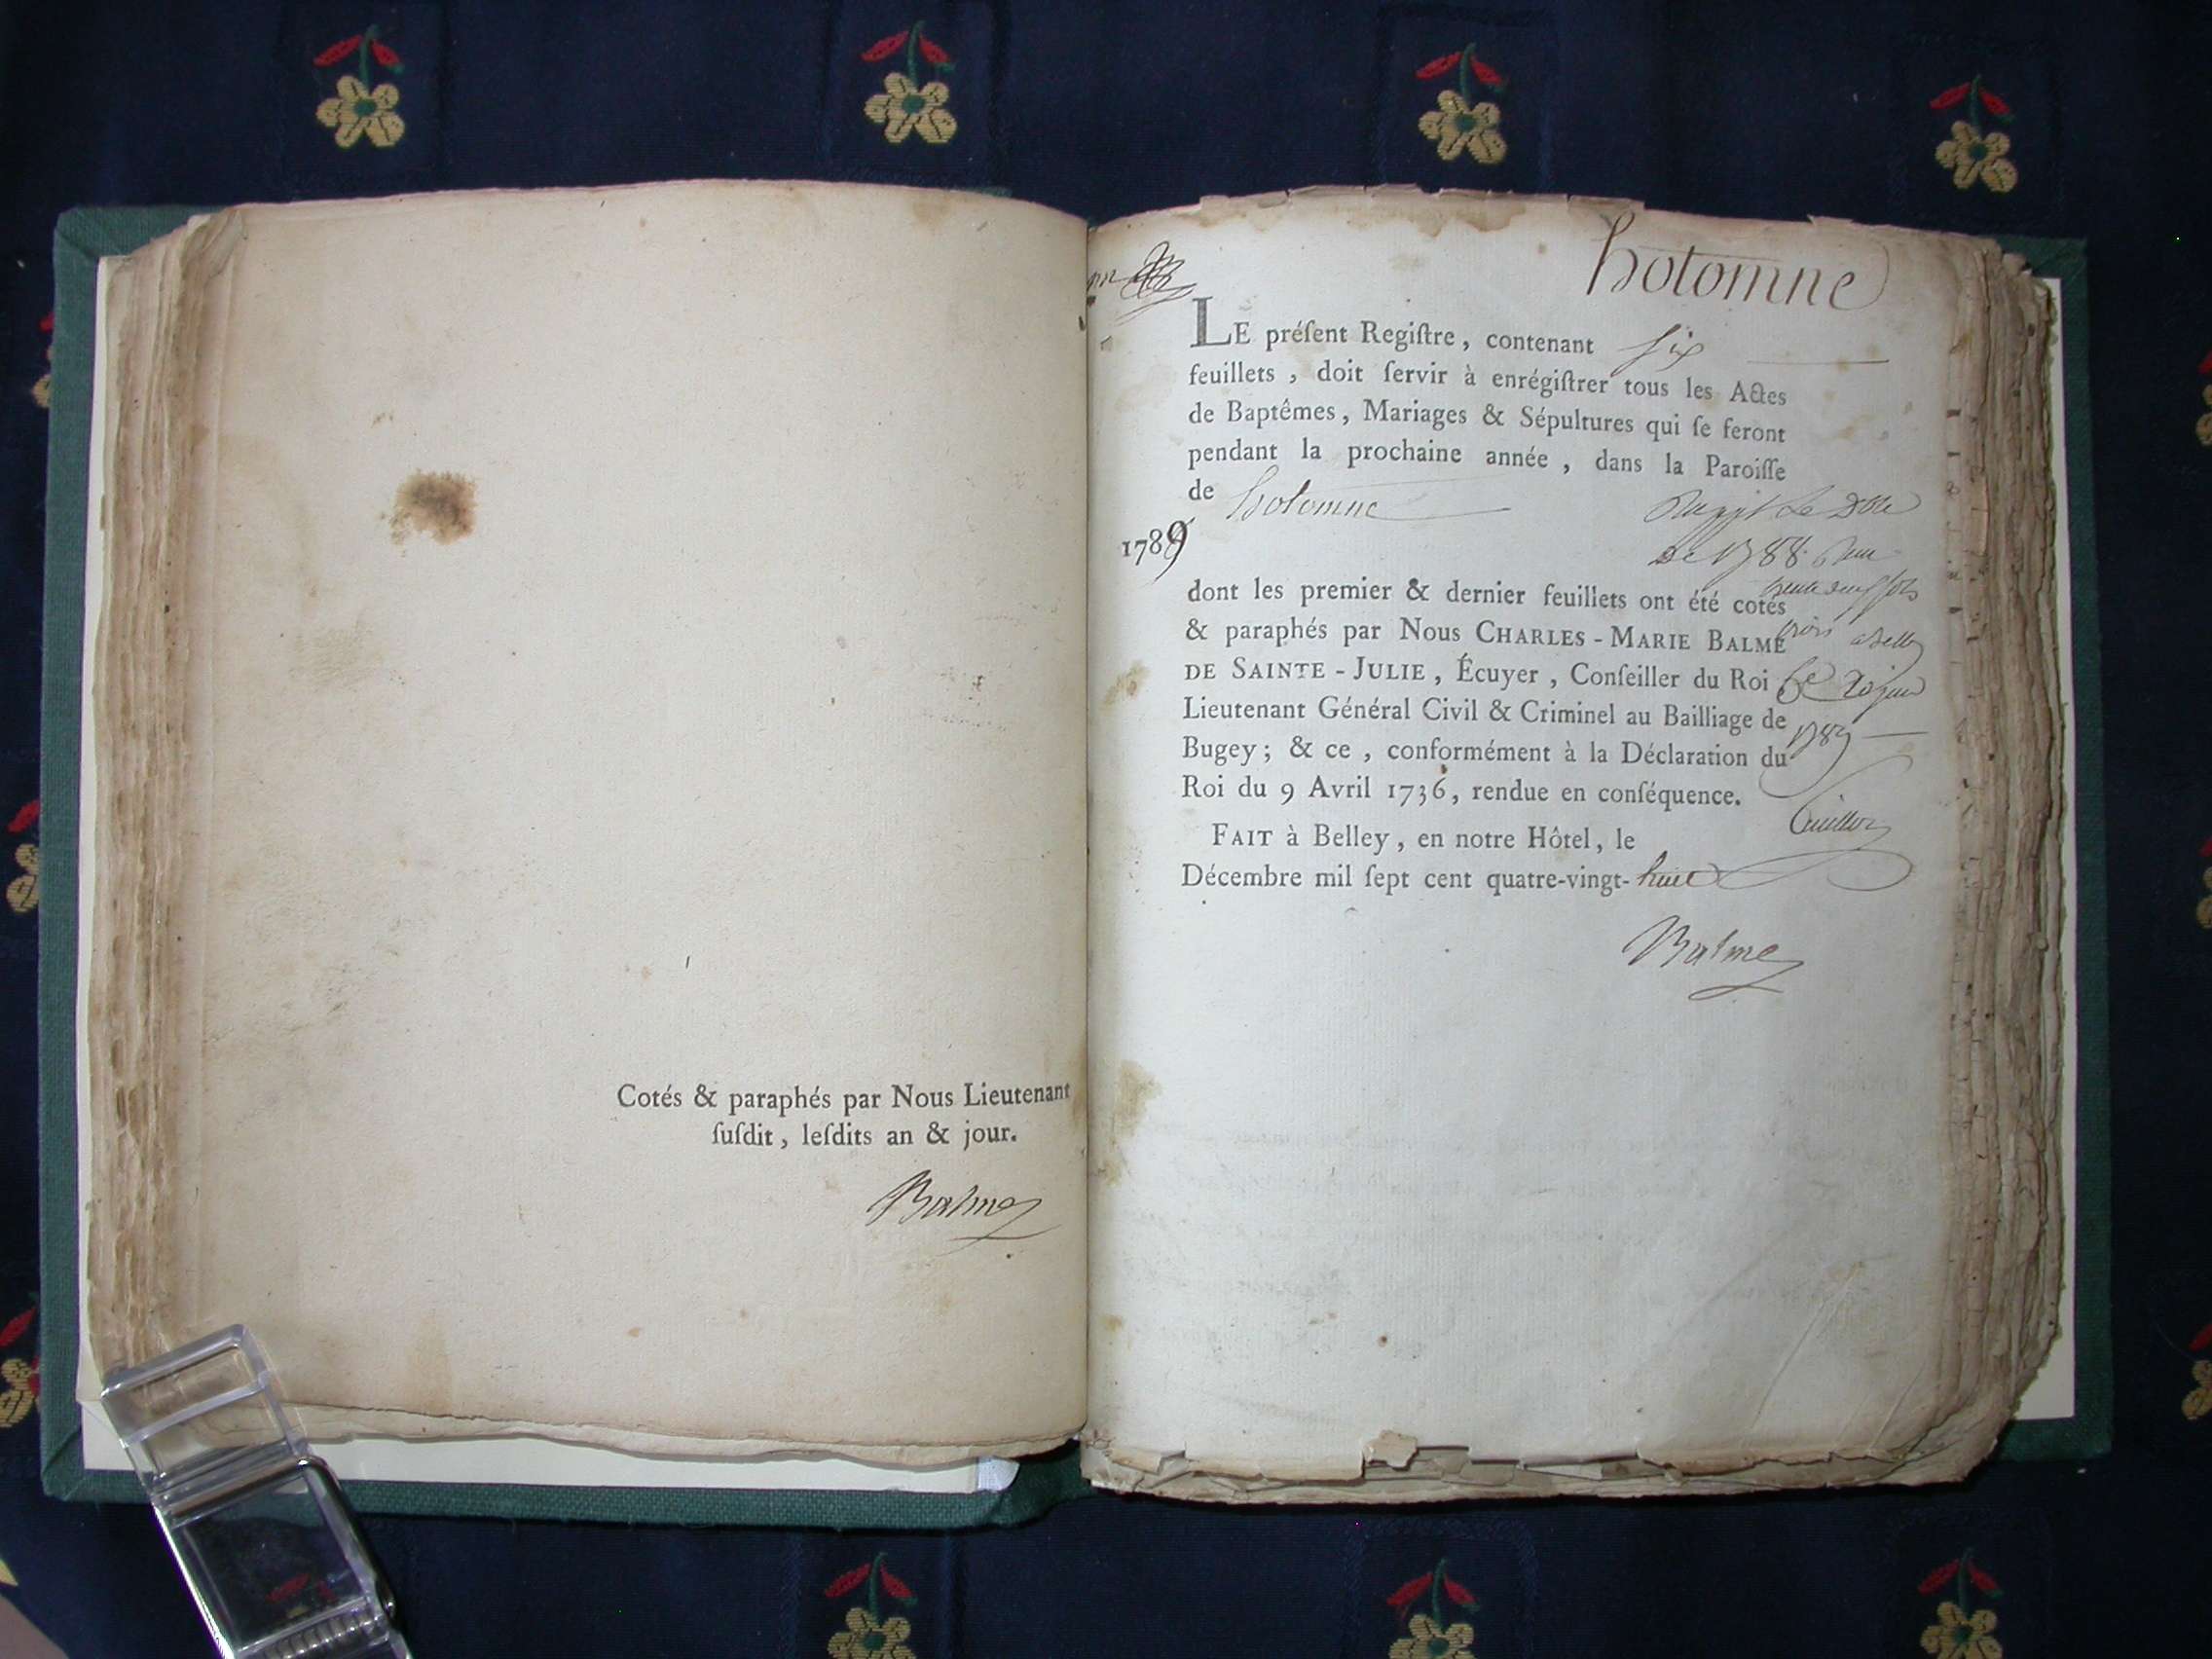 Cotés & paraphés par Nous Lieutenant
ſuſdit, leſdits an & jour.
Balme
hotomne
LE préſent Regiſtre, contenant ſix
feuillets, doit ſervir à enrégiſtrer tous les Actes
de Baptêmes, Mariages & Sépultures qui ſe feront
pendant la prochaine année, dans la Paroiſſe
de hotomne
1789
dont les premier & dernier feuillets ont été cotés
& paraphés par Nous CHARLES-MARIE BALME
DE SAINTE-JULIE, Écuyer, Conſeiller du Roi
Lieutenant Général Civil & Criminel au Bailliage de
Bugey; & ce, conformément à la Déclaration du
Roi du 9 Avril 1736, rendue en conſéquence.
FAIT à Belley, en notre Hôtel, le
Décembre mil ſept cent quatre-vingt-huit
Balme
de 1788
trois a Belley
1789